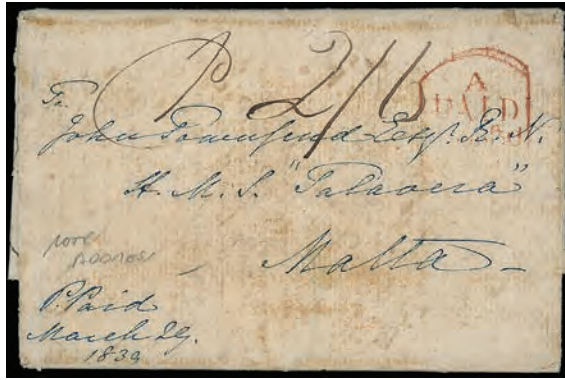 P 2/6
A
PAID
To
John Townsend Esqr. R. N.
H. M. S. "Talavera"
Malta
note
address
P. Paid
March 29.
1839